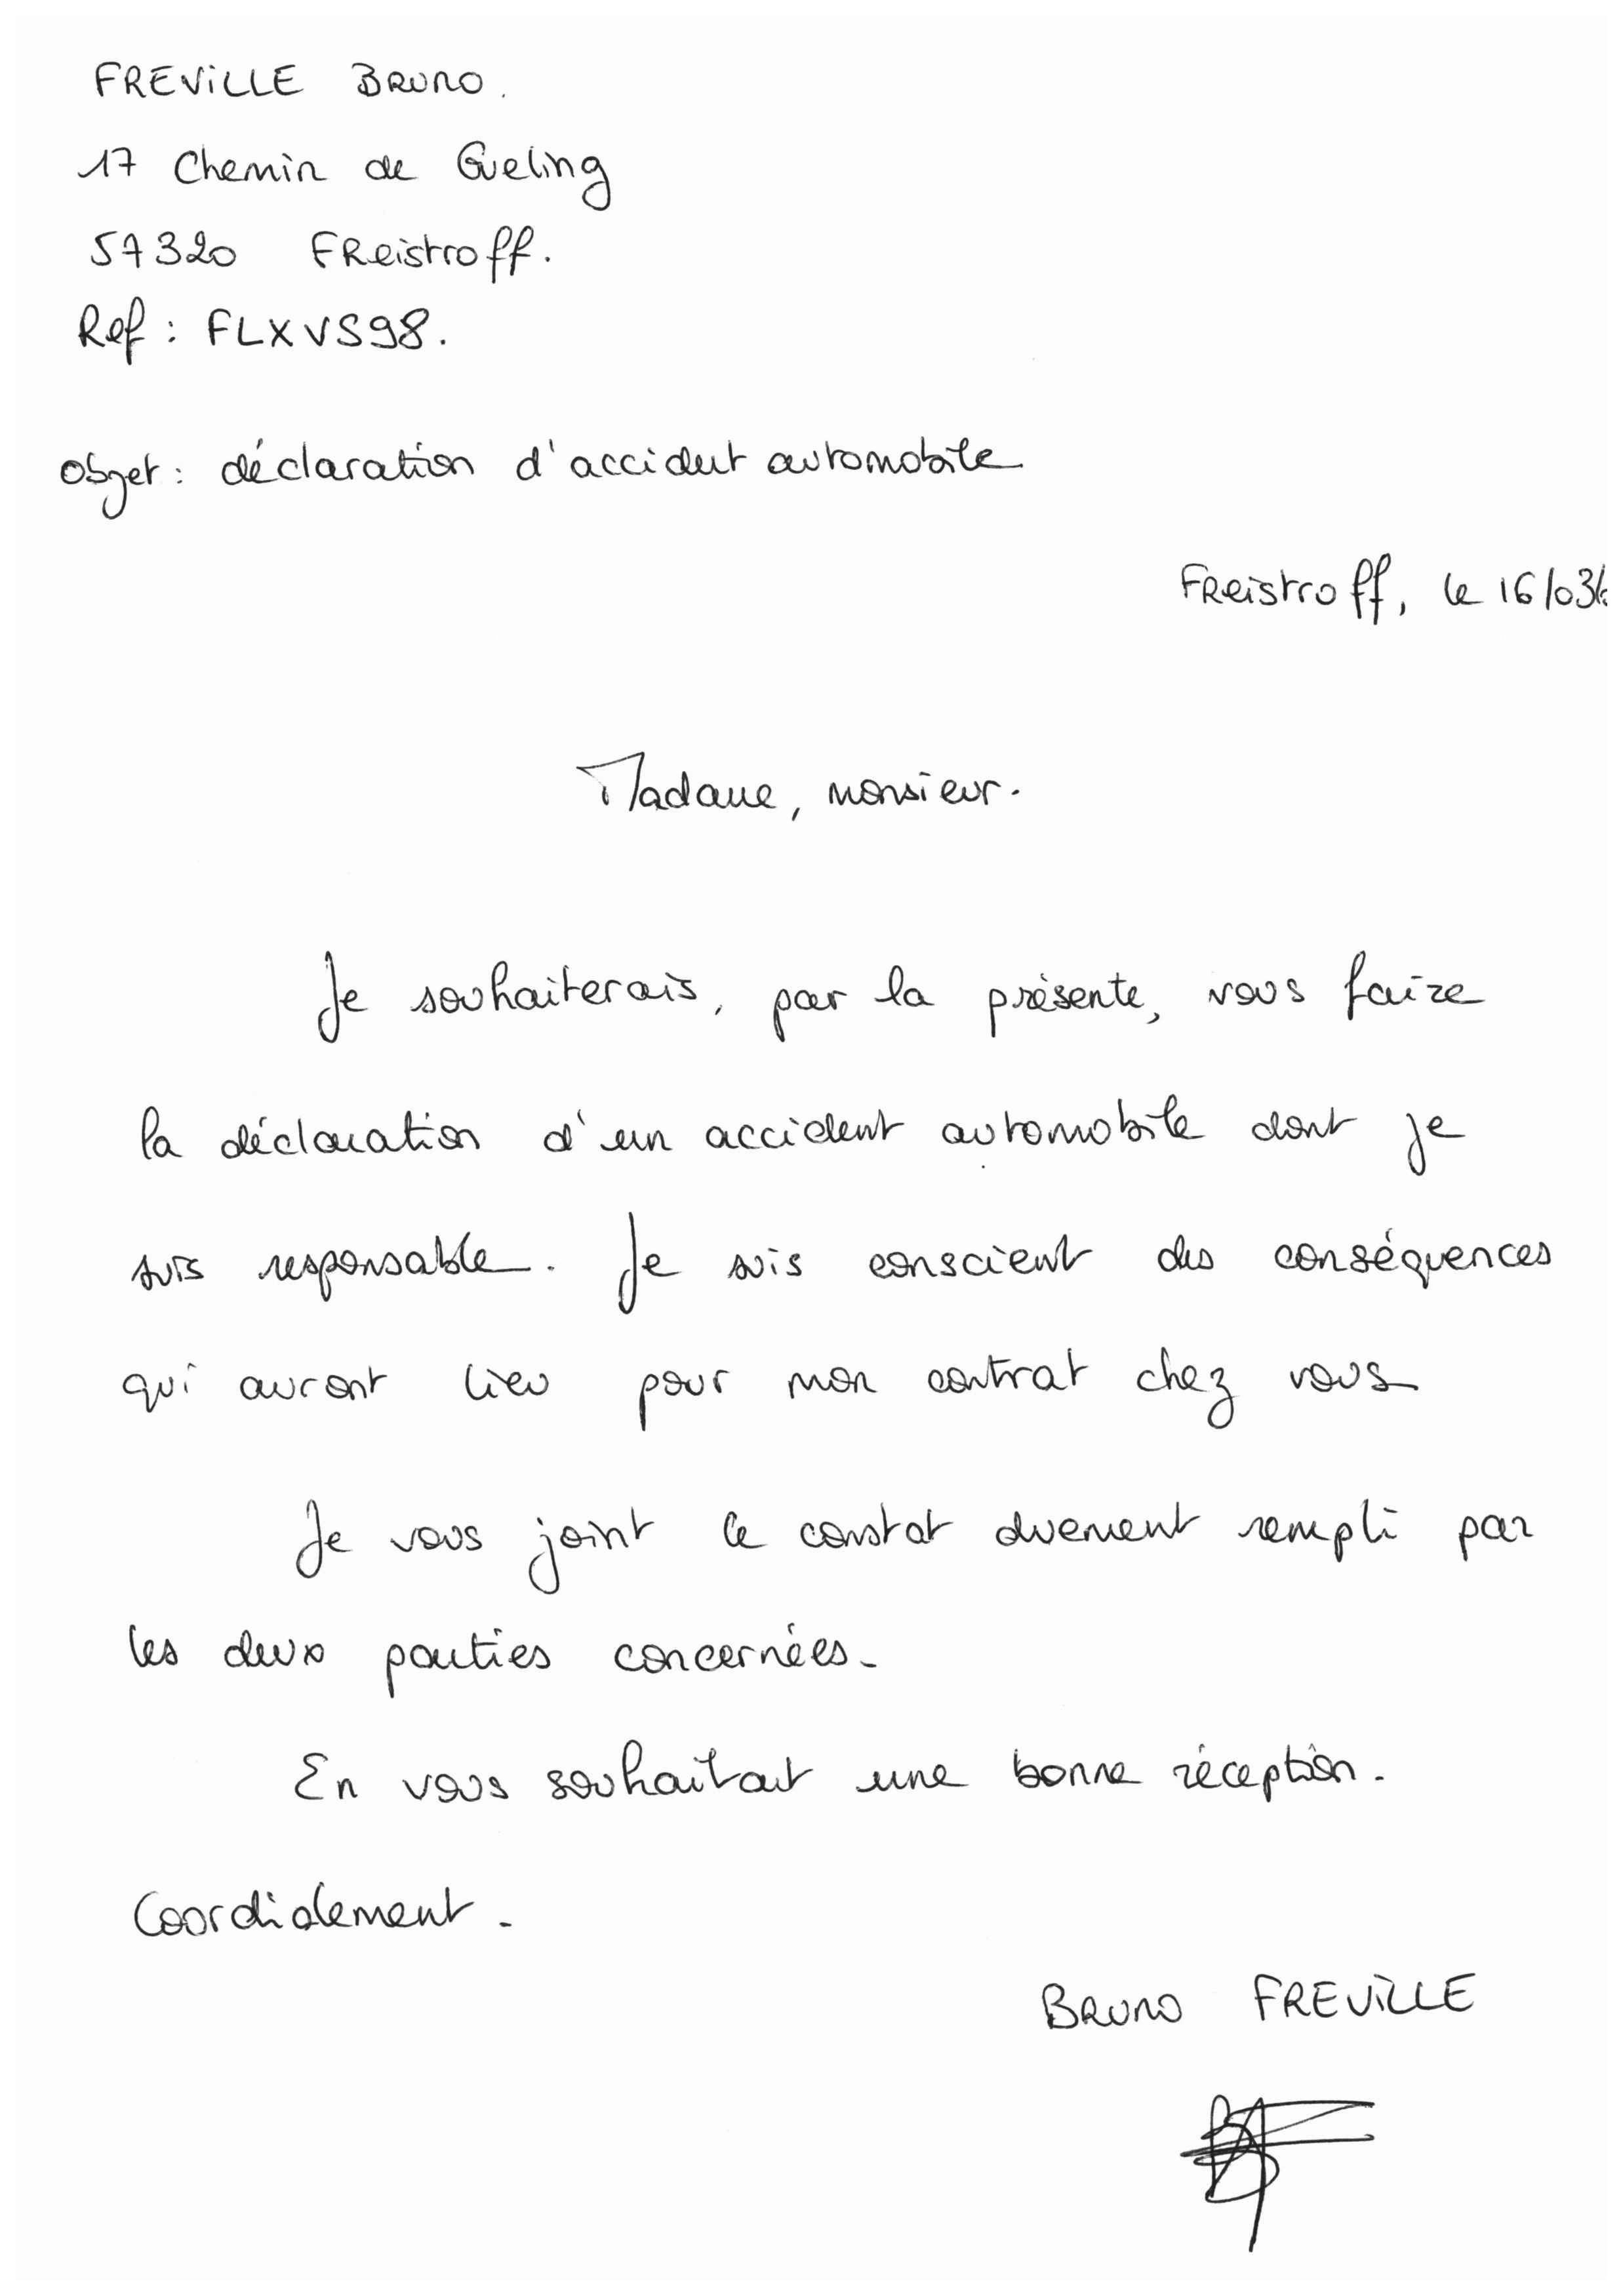 FREVILLE BRUNO.
17 Chemin de Gueling
57320 FReistroff.
Ref : FLXVS98.
Objet : déclaration d'accident automobile
FReistroff, le 16/03/
Madame, monsieur.
Je souhaiterais, par la présente, vous faire
la déclaration d'un accident automobile dont je
suis responsable. Je suis conscient des conséquences
qui auront lieu pour mon contrat chez vous
Je vous joint le constat duement rempli par
les deux parties concernées.
En vous souhaitant une bonne réception.
Coordialement.
BRUNO FREVILLE